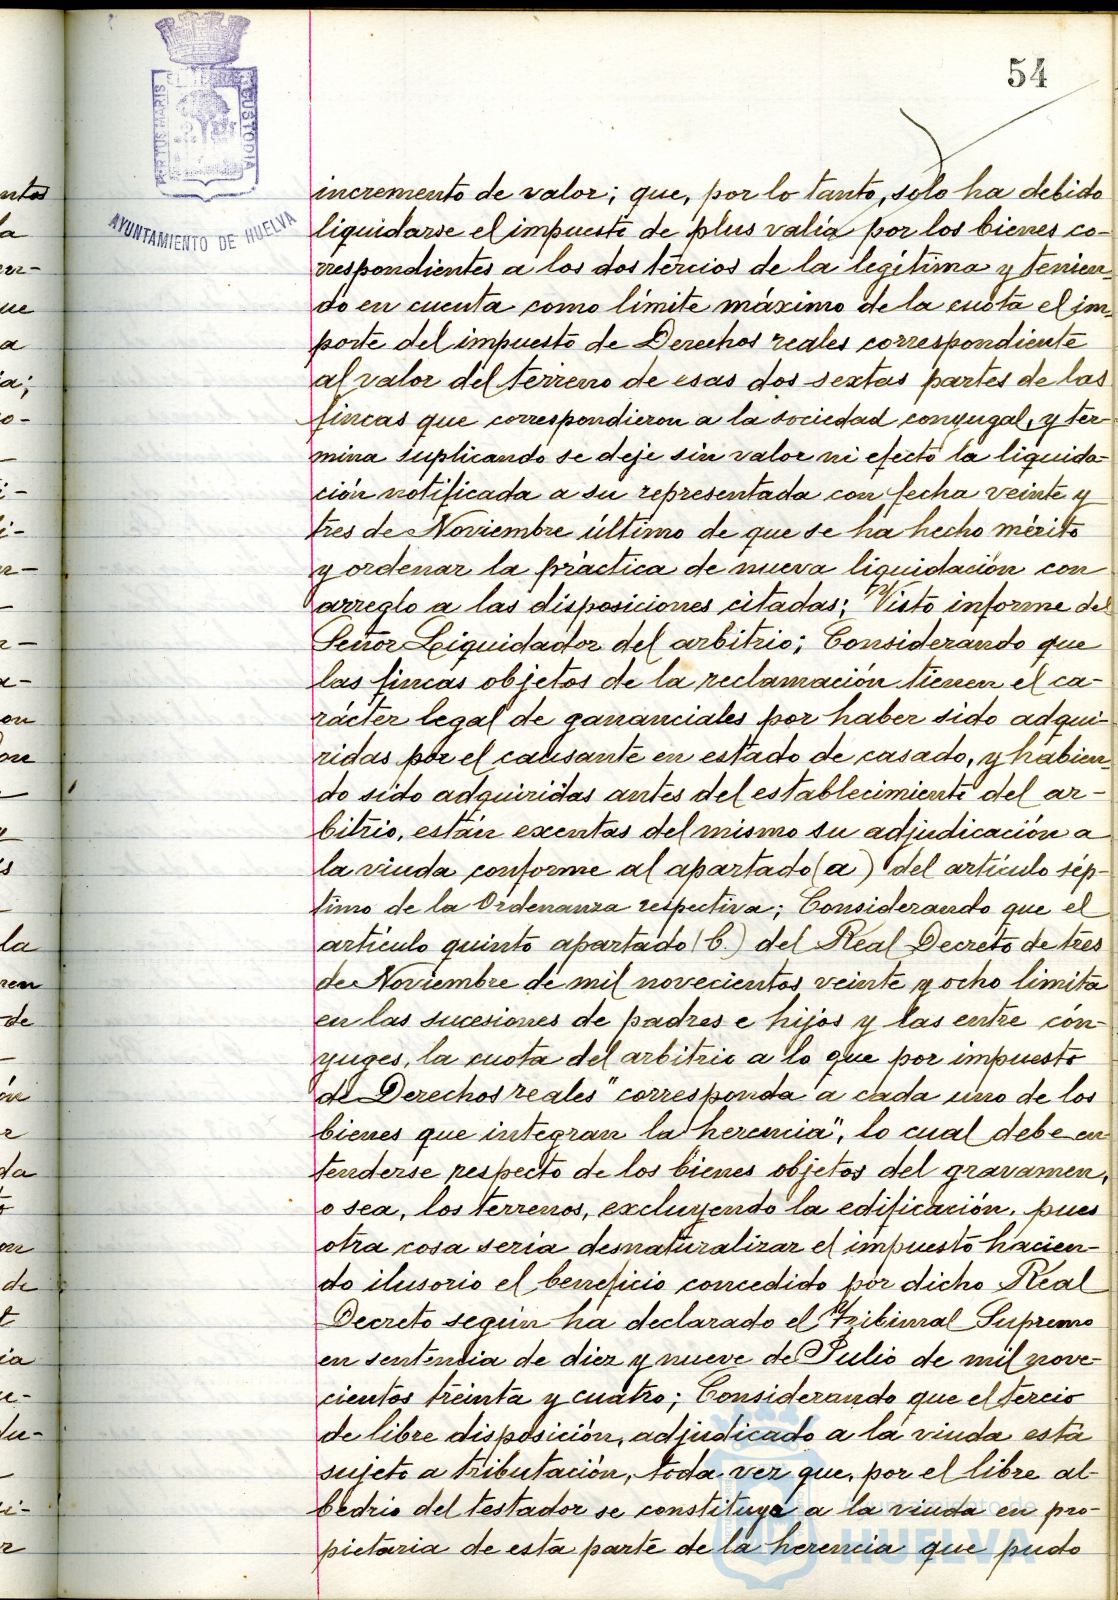 54
PORTUS MARIS ET TERRAE CUSTODIA
AYUNTAMIENTO DE HUELVA
incremento de valor; que, por lo tanto, solo ha debido
liquidarse el impuesto de plus valía por los bienes co-
rrespondientes a los dos tércios de la legítima y tenien-
do en cuenta como límite máximo de la cuota el im-
porte del impuesto de Derechos reales correspondiente
al valor del terreno de esas dos sextas partes de las
fincas que correspondieron a la sociedad conyugal, y ter-
mina suplicando se deje sin valor ni efecto la liquida-
ción notificada a su representada con fecha veinte y
tres de Noviembre último de que se ha hecho mérito
y ordenar la práctica de nueva liquidación con
arreglo a las disposiciones citadas; Visto informe del
Señor Liquidador del arbitrio; Considerando que
las fincas objetos de la reclamación tienen el ca-
rácter legal de gananciales por haber sido adqui-
ridas por el causante en estado de casado, y habien-
do sido adquiridas antes del establecimiento del ar-
bitrio, están exentas del mismo su adjudicación a
la viuda conforme al apartado (a) del artículo sép-
timo de la Ordenanza respectiva; Considerando que el
artículo quinto apartado (b.) del Real Decreto de tres
de Noviembre de mil novecientos veinte y ocho limita
en las sucesiones de padres e hijos y las entre cón-
yuges, la cuota del arbitrio a lo que por impuesto
de Derechos reales "corresponda a cada uno de los
bienes que integran la herencia", lo cual debe en-
tenderse respecto de los bienes objetos del gravamen,
o sea, los terrenos, excluyendo la edificación, pues
otra cosa seria desnaturalizar el impuesto hacien-
do ilusorio el beneficio concedido por dicho Real
Decreto según ha declarado el Tribunal Supremo
en sentencia de diez y nueve de Julio de mil nove-
cientos treinta y cuatro; Considerando que el tercio
de libre disposición, adjudicado a la viuda está
sujeto a tributación, toda vez que, por el libre al-
bedrio del testador se constituye a la viuda en pro-
pietaria de esta parte de la herencia que pudo
Ayuntamiento de
HUELVA